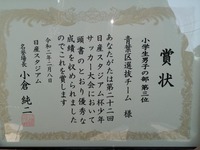 賞状
小学生男子の部 第三位
青葉区選抜チーム 様
あなたがたは第二十二回
日産スタジアム杯少年
サッカー大会において
頭書のとおり優秀な
成績を収められました
のでこれを賞します
令和二年二月八日
日産スタジアム
名誉場長
小倉 純二